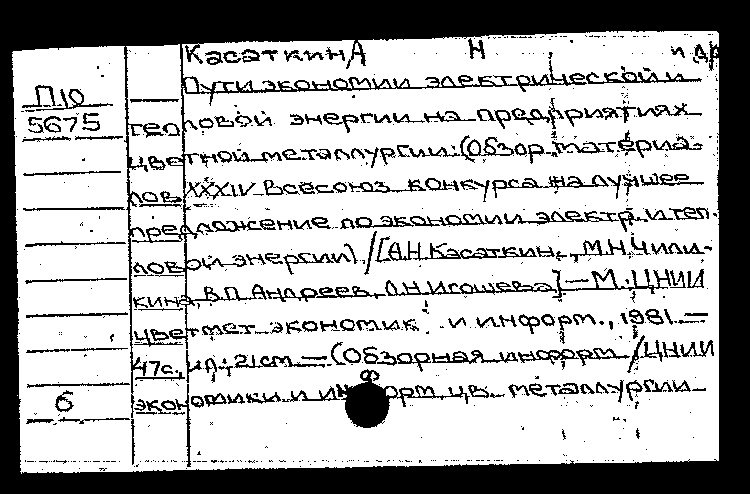 Касаткин А Н и др
Пути экономии электрической и
П10
5675
тепловой энергии на предприятиях
цветной металлургии: (Обзор материа-
лов XXXIV Всесоюз. конкурса на лучшее
предложение по экономии электр. и теп-
ловой энергии) / [А.Н. Касаткин, М.Н. Чили-
кина, В.П. Андреев, Л.Н. Игошева] — М.: ЦНИИ
цветмет экономик. и информ., 1981. —
47с., ил.; 21см. — (Обзорная информ. / ЦНИИ
экономики и информ. цв. металлургии
6